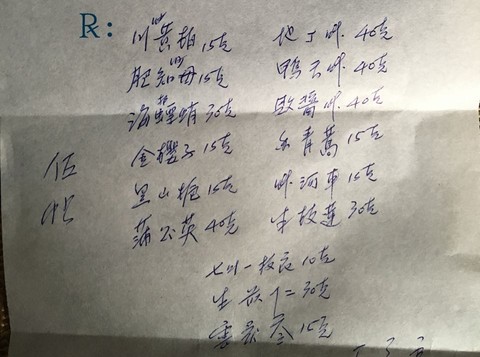 R:
川黄柏 15克 地丁草 40克
肥知母 15克 鸭舌草 40克
海螵蛸 30克 败酱草 40克
金樱子 15克 青蒿 15克
黑山栀 15克 草河车 15克
蒲公英 40克 半枝莲 30克
伍
七叶一枝花 10克
生 30克
15克